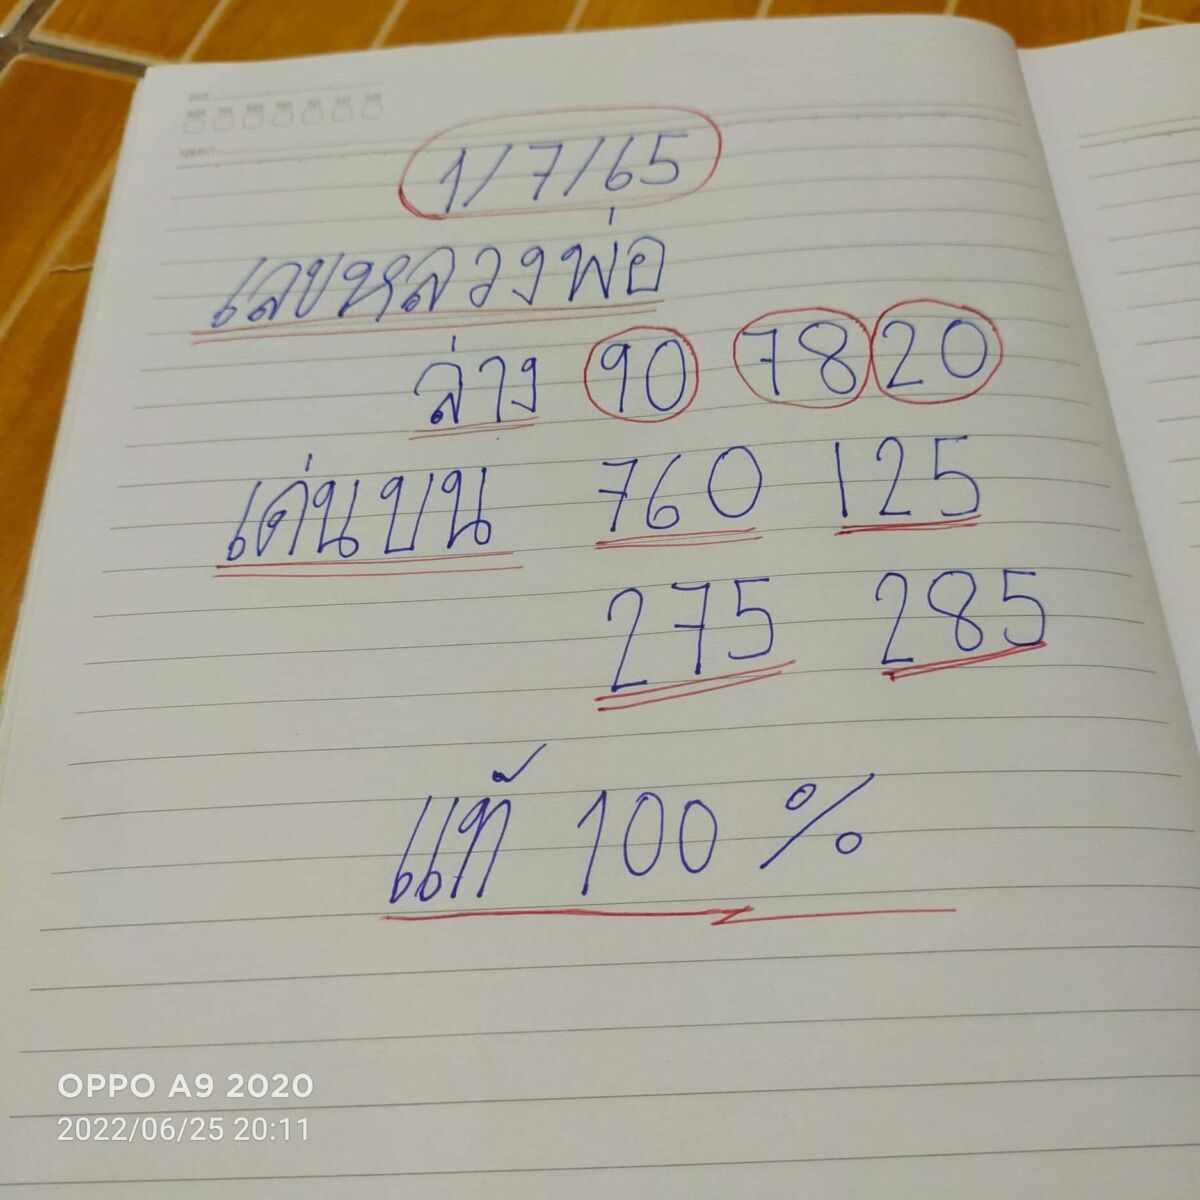 1/7/65
เลขหลวงพ่อ
ล่าง 90 78 20
เด่นบน 760 125
275 285
แท้ 100 %
OPPO A9 2020
2022/06/25 20:11